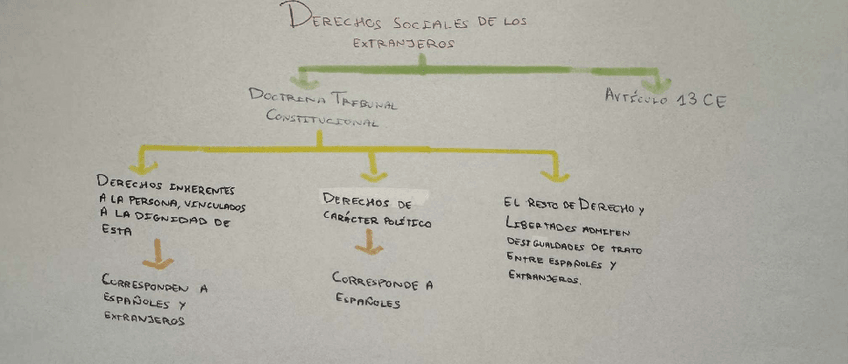 DERECHOS SOCIALES DE LOS
EXTRANJEROS
DOCTRINA TRIBUNAL
CONSTITUCIONAL
ARTÍCULO 13 CE
DERECHOS INHERENTES
A LA PERSONA, VINCULADOS
A LA DIGNIDAD DE
ESTA
CORRESPONDEN A
ESPAÑOLES Y
EXTRANJEROS
DERECHOS DE
CARÁCTER POLÍTICO
CORRESPONDE A
ESPAÑOLES
EL RESTO DE DERECHO Y
LIBERTADES ADMITEN
DESIGUALDADES DE TRATO
ENTRE ESPAÑOLES Y
EXTRANJEROS.